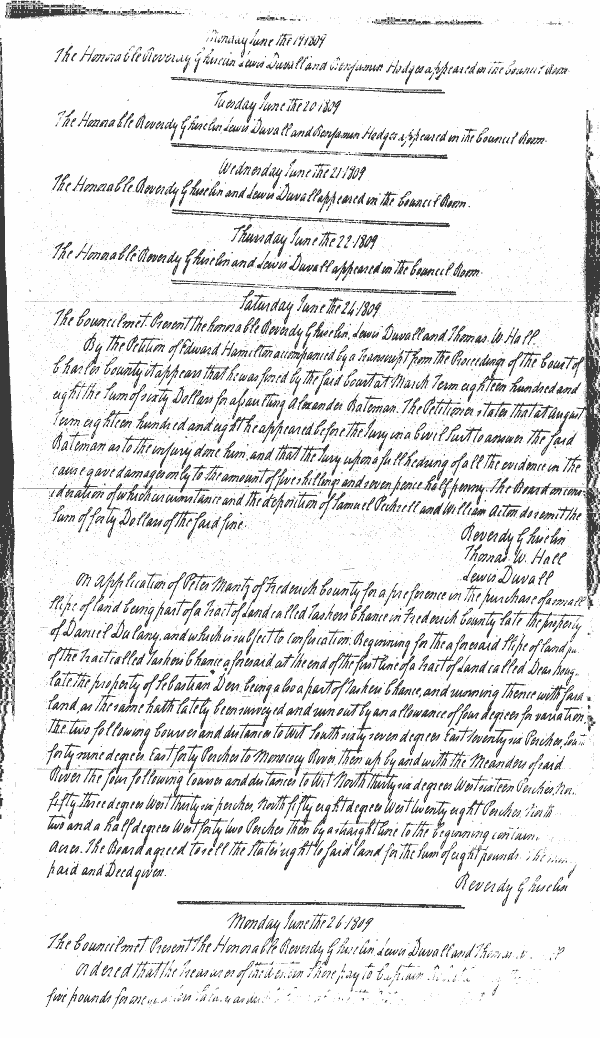 Monday June the 19 1809
The Honorable Reverdy Ghiselin Lewis Duvall and Benjamin Hodges appeared in the Council Room
Tuesday June the 20 1809
The Honorable Reverdy Ghiselin Lewis Duvall and Benjamin Hodges appeared in the Council Room
Wednesday June the 21 1809
The Honorable Reverdy Ghiselin and Lewis Duvall appeared in the Council Room.
Thursday June the 22 1809
The Honorable Reverdy Ghiselin and Lewis Duvall appeared in the Council Room
Saturday June the 24 1809
The Council met. Present the honorable Reverdy Ghiselin, Lewis Duvall and Thomas W. Hall.
By the Petition of Edward Hamilton accompanied by a Transcript from the Proceedings of the Court of
Charles County it appears that he was fined by the said Court at March Term eighteen hundred and
eight the Sum of sixty Dollars for assaulting Alexander Bateman. The Petitioner states that at August
Term eighteen hundred and eight he appeared before the Jury in a Civil Suit to answer the said
Bateman as to the injury done him, and that the Jury upon a full hearing of all the evidence in the
cause gave damages only to the amount of five shillings and seven pence half penny. The Board on consi
deration of which circumstance and the deposition of Samuel and William Acton do remit the
Sum of forty Dollars of the said fine.
Reverdy Ghiselin
Thomas W. Hall
Lewis Duvall
On application of Peter Mantz of Frederick County for a preference in the purchase of a small
Slipe of land being part of a Tract of Land called Taskers Chance in Frederick County late the property
of Daniel Dulany, and which is subject to confiscation. Beginning for the aforesaid Slipe of land
of the Tract called Taskers Chance aforesaid at the end of the first line of a Tract of Land called
late the property of Sebastian Derr being also a part of Taskers Chance, and running thence with said
land, as the same hath lately been surveyed and run out by an allowance of four degrees for variation,
the two following Courses and distances to Wit South sixty seven degrees East seventy six Perches,
forty nine degrees East forty Perches to Monococy River then up by and with the Meanders of said
River the four following Courses and distances to Wit North thirty six degrees West sixteen Perches,
fifty three degrees West thirty six perches, North fifty eight degrees West twenty eight Perches North
two and a half degrees West forty two Perches then by a straight line to the beginning
Acres. The Board agreed to sell the States right to said land for the Sum of eight pounds.
paid and Deed given.
Reverdy Ghiselin
Monday June the 26 1809
The Council met Present The Honorable Reverdy Ghiselin Lewis Duvall and
Ordered that the Treasurer of the Western Shore pay to Captain
five pounds for